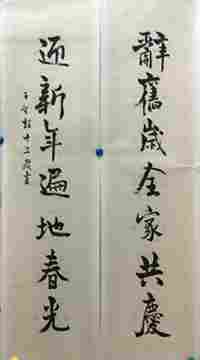 辭舊歲全家共慶
迎新年遍地春光